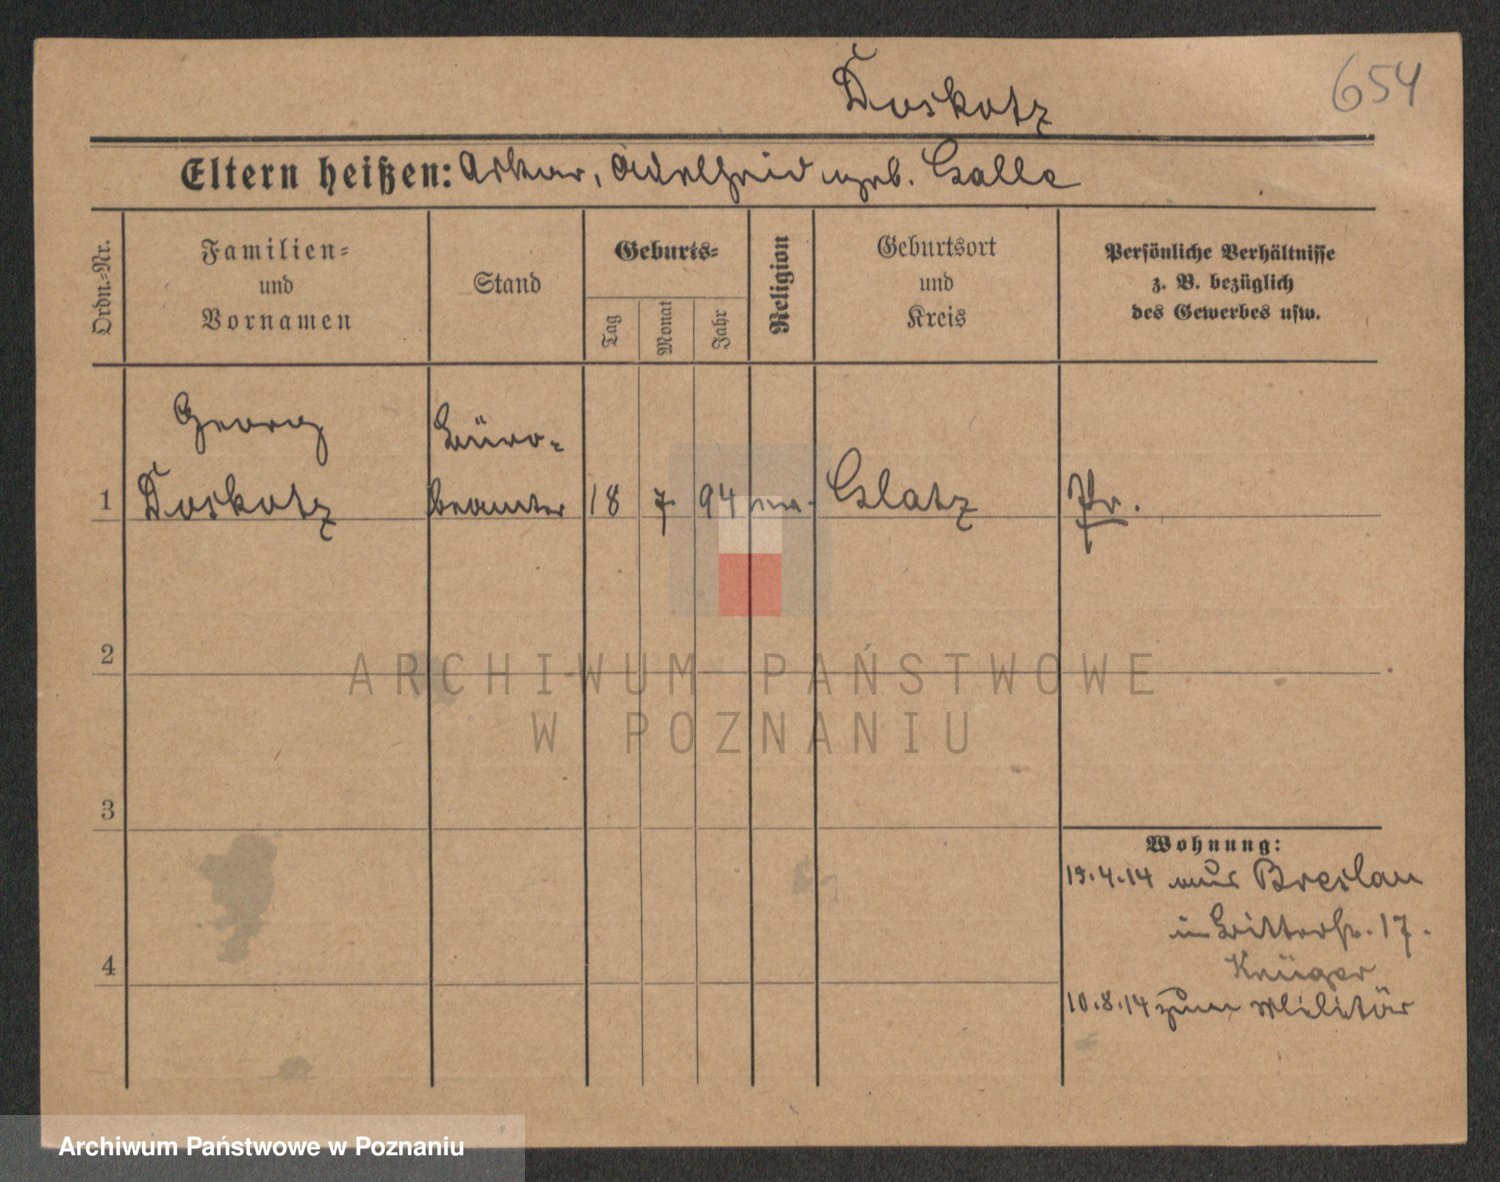 Doskotz
654
Eltern heißen: Oskar, Adelheid geb. Galle
Ordn.-Nr.
Familien-
und
Vornamen
Stand
Geburts-
Tag
Monat
Jahr
Religion
Geburtsort
und
Kreis
Persönliche Verhältnisse
z. B. bezüglich
des Gewerbes usw.
Georg
Büro-
1 Doskotz beamter 18 7 94 Glatz Pr.
2
3
4
Wohnung:
19.4.14 aus Breslau
in Ritterstr. 17.
Krüger
10.8.14 zum Militär
ARCHIWUM PAŃSTWOWE
W POZNANIU
Archiwum Państwowe w Poznaniu